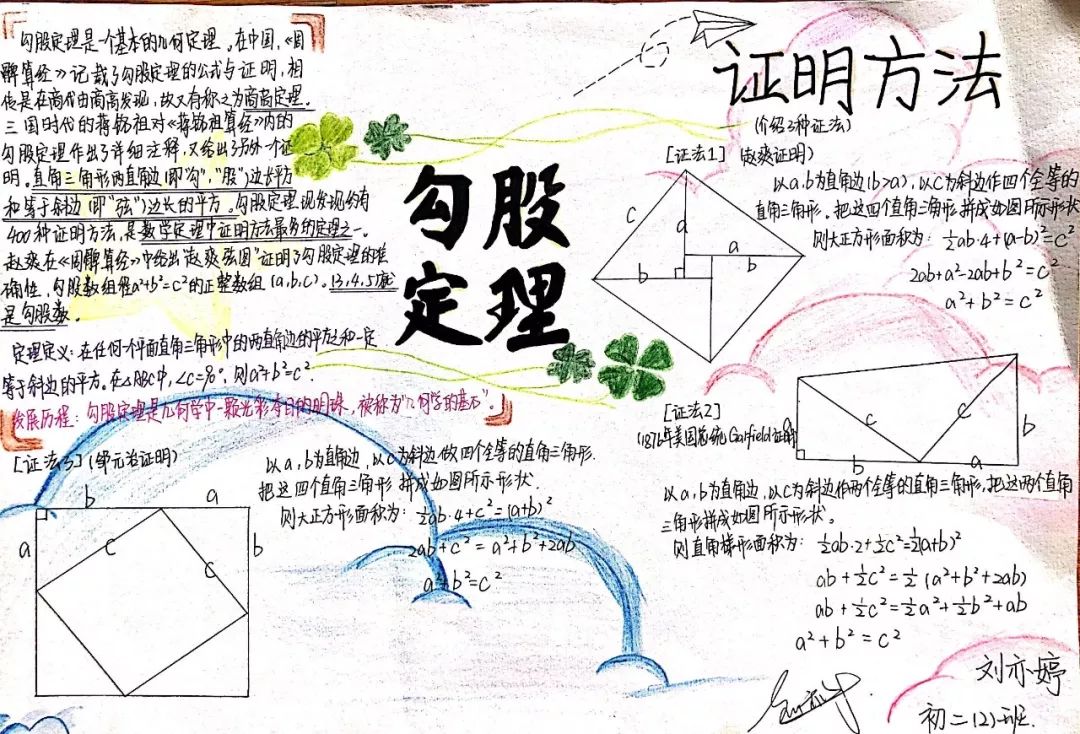 勾股定理是一个基本的几何定理。在中国,《周
髀算经》记载了勾股定理的公式与证明,相
传是在商代由商高发现,故又有称之为商高定理。
三国时代的蒋铭祖对《蒋铭祖算经》内的
勾股定理作出了详细注释,又给出了另外一个证
明。直角三角形两直角边(即"勾","股")边长平方
和等于斜边(即"弦")边长的平方。勾股定理现发现约有
400种证明方法,是数学定理中证明方法最多的定理之一。
赵爽在《周髀算经》中给出"赵爽弦图"证明了勾股定理的准
确性,勾股数组程a²+b²=c²的正整数组(a,b,c)。(3,4,5)就
是勾股数。
定理定义:在任何一个平面直角三角形中的两直角边的平方之和一定
等于斜边的平方。在△ABC中,∠C=90°,则a²+b²=c².
发展历程:勾股定理是几何学中一颗光彩夺目的明珠,被称为"几何学的基石"。
勾股
定理
证明方法
(介绍3种证法)
[证法1](赵爽证明)
以a,b为直角边(b>a),以c为斜边作四个全等的
直角三角形,把这四个直角三角形拼成如图所示形状
则大正方形面积为:½ab·4+(a-b)²=c²
2ab+a²-2ab+b²=c²
a²+b²=c²
c
a
a
b
b
[证法2]
(1876年美国总统Garfield证明)
a
c
c
b
b
a
以a,b为直角边,以c为斜边作两个全等的直角三角形,把这两个直角
三角形拼成如图所示形状。
则直角梯形面积为:½ab·2+½c²=½(a+b)²
ab+½c²=½(a²+b²+2ab)
ab+½c²=½a²+½b²+ab
a²+b²=c²
[证法3](邹元治证明)
b
a
a
c
c
b
以a,b为直角边,以c为斜边做四个全等的直角三角形.
把这四个直角三角形拼成如图所示形状.
则大正方形面积为:½ab·4+c²=(a+b)²
2ab+c²=a²+b²+2ab
a²+b²=c²
刘亦婷
初二(2)班.